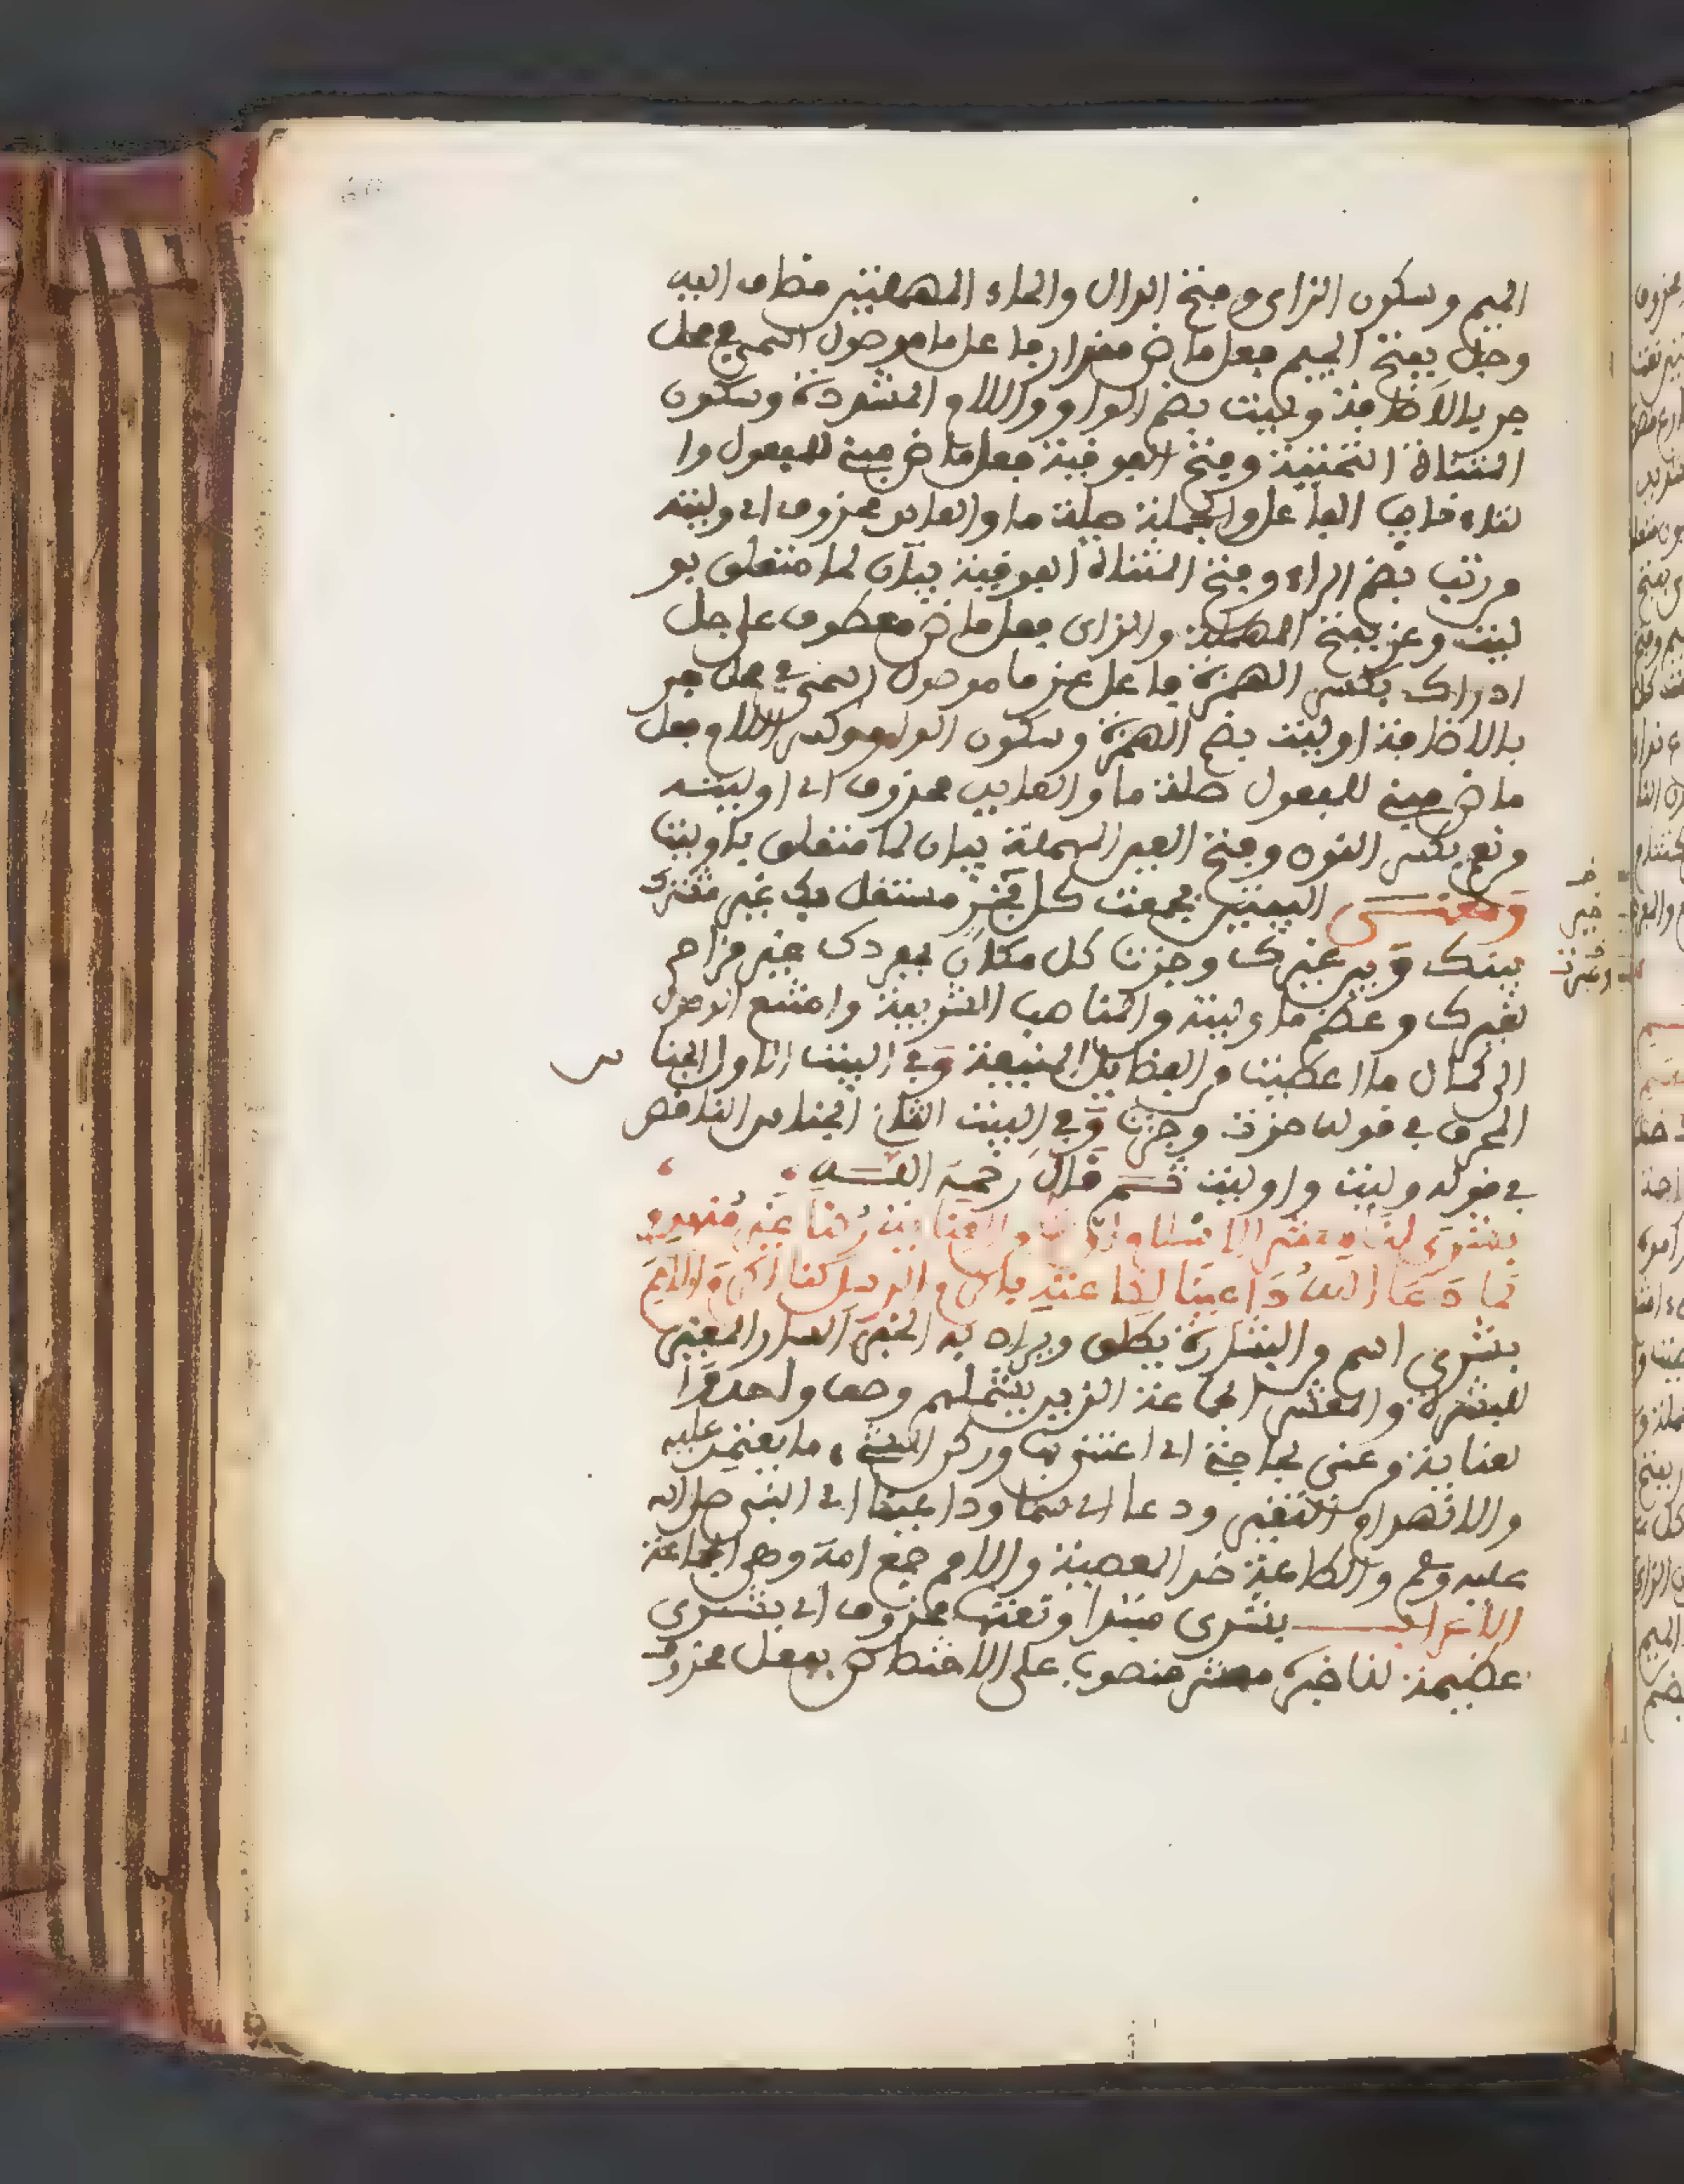 الميم وسكون الزاى وفتح الدال والحاء المهملتين مضاف اليه
وجل بفتح الجيم فعل ماض مقدار فاعل ما موصول اسمي في محل
جر بالاضافة وليت بضم الواو واللام المشددة وسكون
المثناة التحتية وفتح الفوقية فعل ماض مبني للمفعول وا
لتاء نايب الفاعل والجملة صلة ما والعايد محذوف اي وليته
من رتب بضم الراء وفتح المثناة الفوقية بيان لما متعلق بو
ليت وعز بفتح المهملة والزاى فعل ماض معطوف على جل
ادراك بكسر الهمزة فاعل عز ما موصول اسمي في محل جر
بالاضافة اوليت بضم الهمزة وسكون الواو وكسر اللام فعل
ماض مبني للمفعول صلة ما والعايد محذوف اي اوليته
من نعم بكسر النون وفتح العين المهملة بيان لما متعلق باوليت
ومعنى البيتين فجمعت كل فخر مستقل بك غير مشترك
بينك وبين غيرك وجزت كل مكان بمفردك غير مزاحم
لغيرك وعظم ما وليته والمناصب الشريفة وامتنع الوصول
الى كمال ما اعطيت من الفضايل المنيعة وفي البيت الاول الجنا س
المحرف في قوله حزت وجزت وفي البيت الثاني الجناس الناقص
في قوله وليت واوليت ثم قال رحمه الله
بشرى لنا معشر الاسلام ان لنا من العناية ركنا غير منهدم
لما دعا الله داعينا لطاعته باكرم الرسل كنا اكرم الامم
بشرى اسم من البشارة يطلق ويراد به الخبر السار المغير
للبشرة والمعشر الجماعة الذين يشملهم وصف واحد وا
لعناية من عنى بحاجته اي اعتنى بها وركن الشيء ما يعتمد عليه
والانهدام التغير ودعا اي سما وداعينا اي النبي صلى الله
عليه وسلم والطاعة ضد المعصية والامم جمع امة وهي الجماعة
الاعراب بشرى مبتدا ونعتها محذوف اي بشرى
عظيمة لنا خبره معشر منصوب على الاختصاص بفعل محذوف